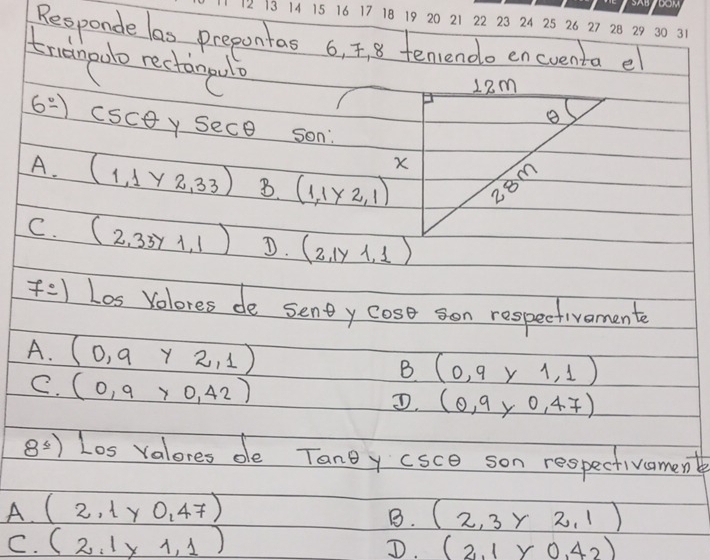 12 13 14 15 16 17 18 19 20 21 22 23 24 25 26 27 28 29 30 31
SAB DOM
Responde las preguntas 6,7,8 teniendo en cuenta el
triángulo rectángulo
12m
θ
x
28m
6º) cscθ y Secθ son:
A. (1,1 y 2,33) B. (1,1 y 2,1)
C. (2,33 y 1,1) D. (2,1 y 1,1)
7º) Los Valores de senθ y cosθ son respectivamente
A. (0,9 y 2,1) B (0,9 y 1,1)
C. (0,9 y 0,42) D. (0,9 y 0,47)
8º) Los valores de Tanθ y cscθ son respectivamente
A. (2,1 y 0,47) B. (2,3 y 2,1)
C. (2,1 y 1,1) D. (2,1 y 0,42)